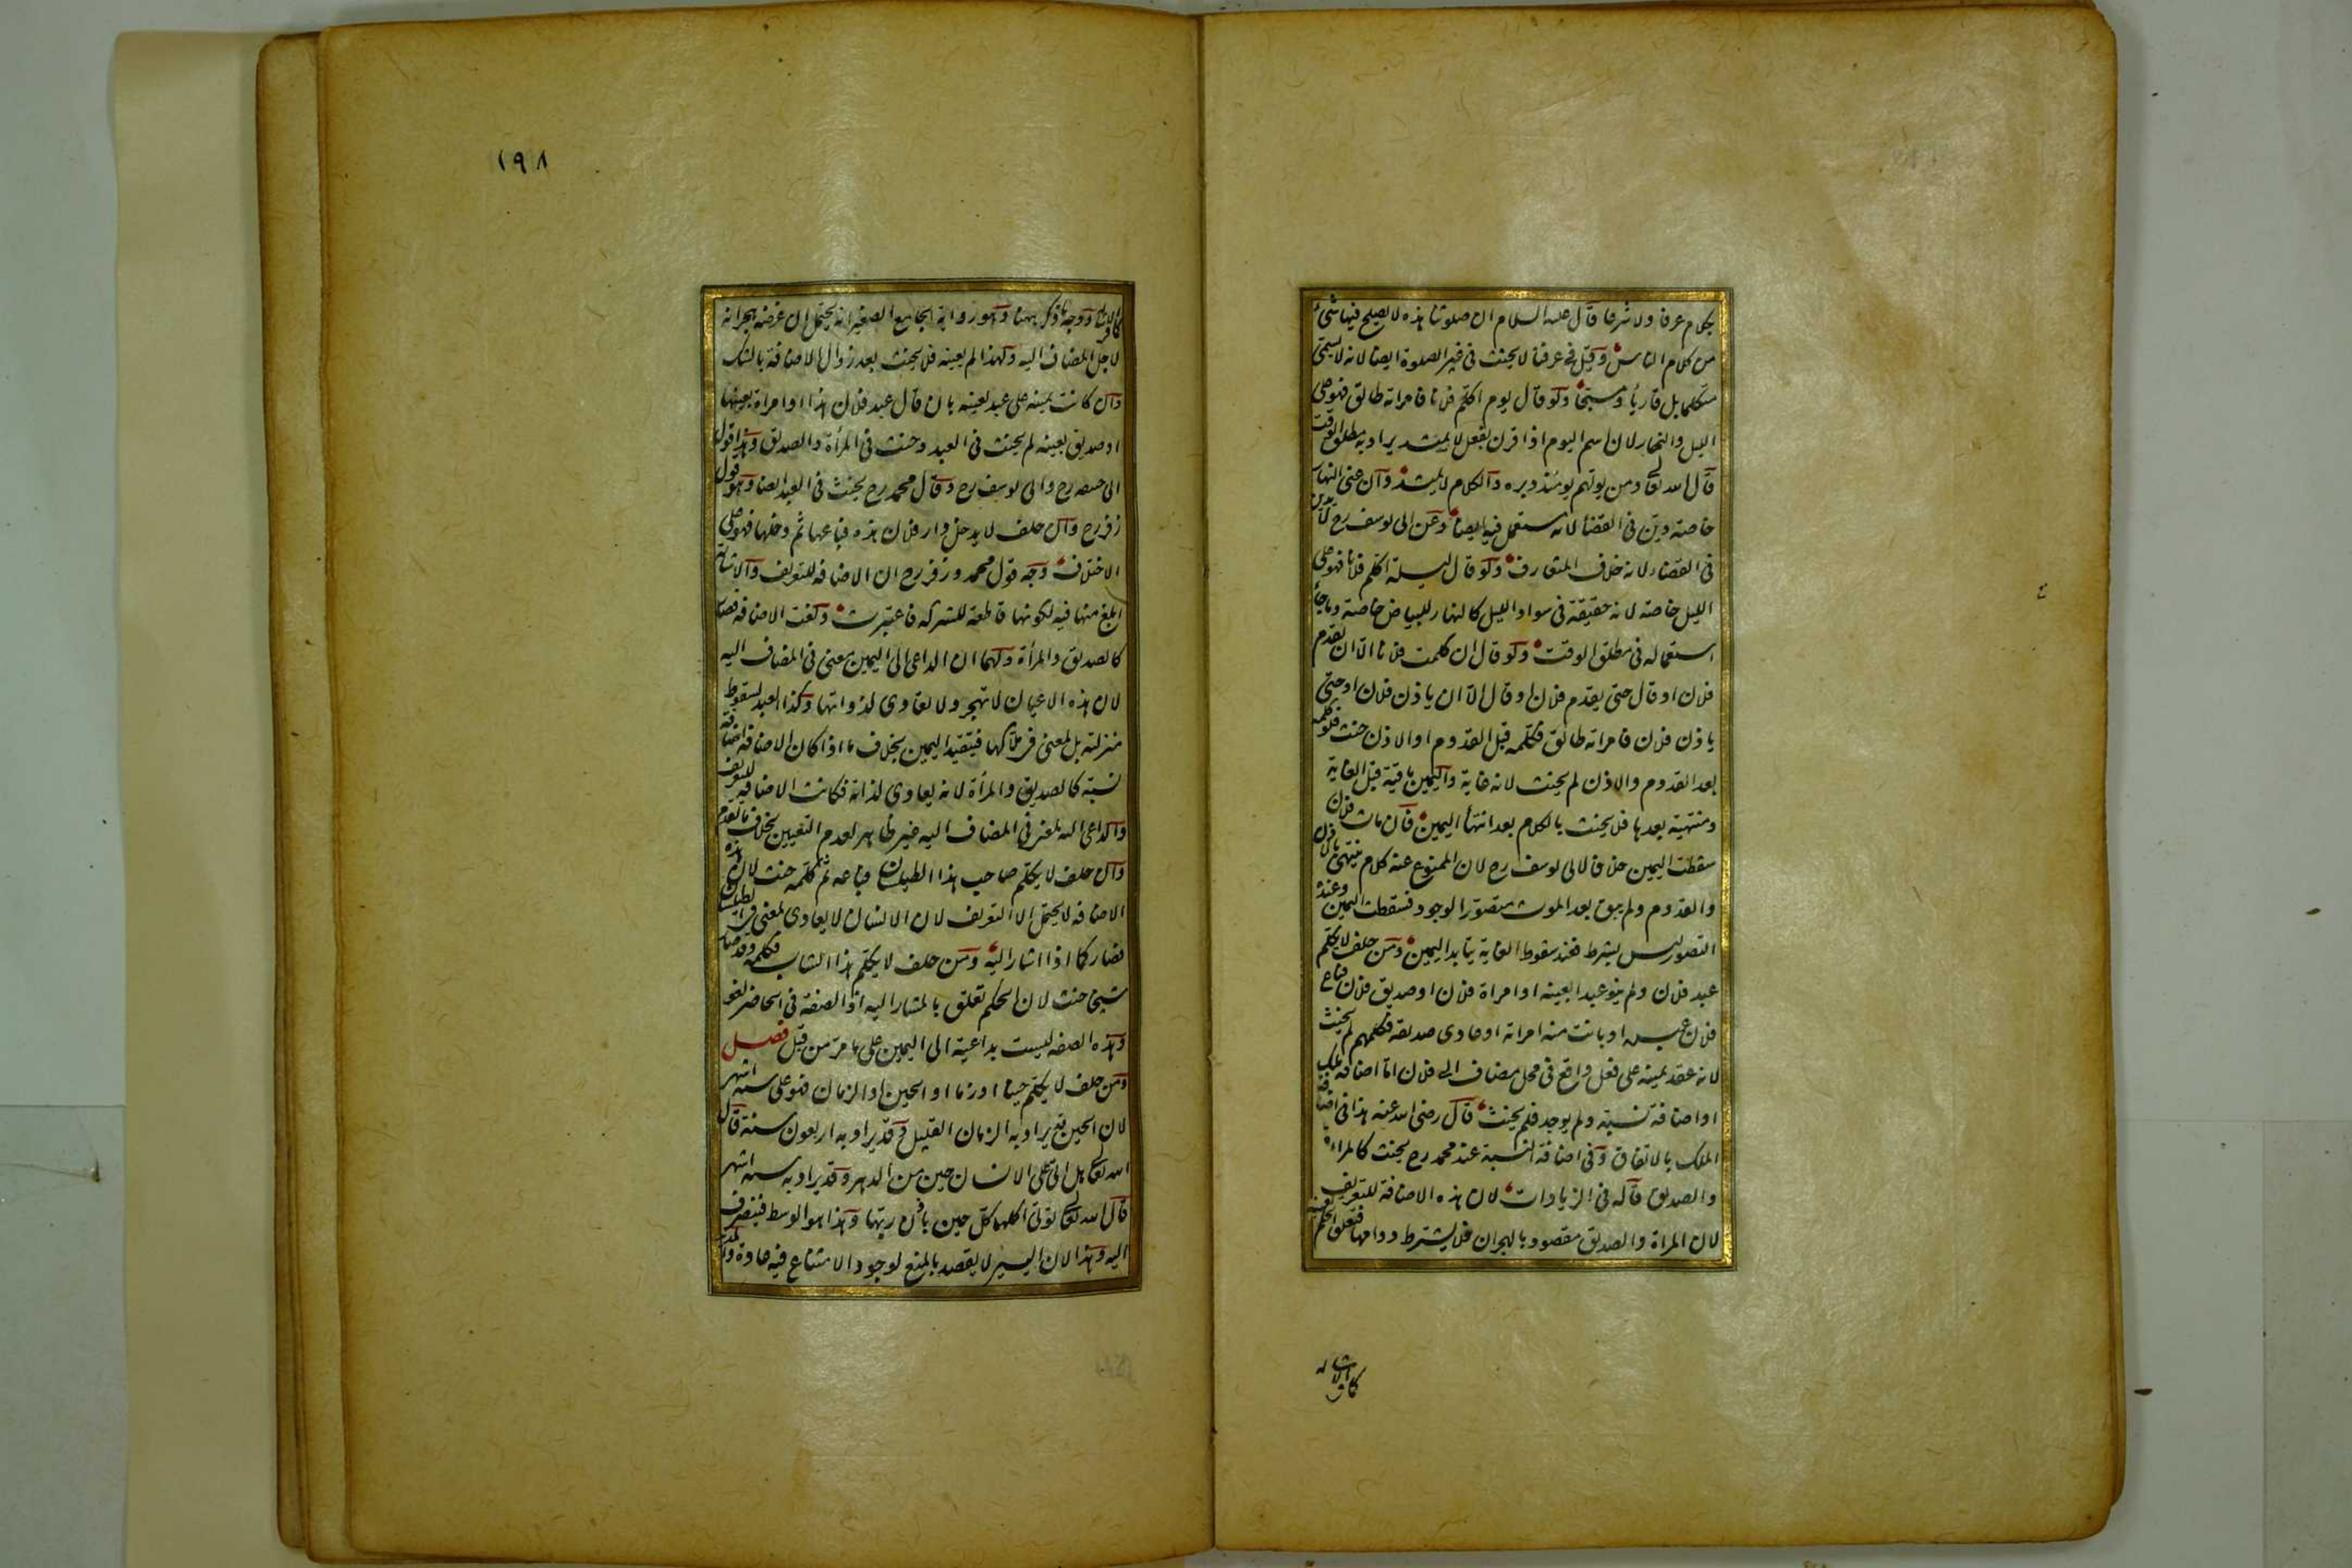 بكلام عرفا ولا شرعا قال عليه السلام ان صلوتنا هذه لا يصلح فيها شئ
من كلام الناس وقيل فى عرفنا لا يحنث فى غير الصلوة ايضا لانه لا يسمى
متكلما بل قاريأ ومسبحا ولو قال يوم اكلم فلانا فامراته طالق فهو على
الليل والنهار لان اسم اليوم اذا قرن بفعل لا يمتد يراد به مطلق الوقت
قال الله تعالى ومن يولهم يومئذ دبره والكلام لا يمتد وان عنى النهار
خاصة دين فى القضأ لانه مستعمل فيه ايضا وعن ابى يوسف رح لا يدين
فى القضاء لانه خلاف المتعارف ولو قال ليلة اكلم فلانا فهو على
الليل خاصة لانه حقيقة فى سواد الليل كالنهار للبياض خاصة وما جأ
استعماله فى مطلق الوقت ولو قال ان كلمت فلانا الا ان يقدم
فلان او قال حتى يقدم فلان او قال الا ان ياذن فلان او حتى
ياذن فلان فامراته طالق فكلمه قبل القدوم او الاذن حنث ولو كلمه
بعد القدوم والاذن لم يحنث لانه غاية واليمين باقية قبل الغاية
ومنتهية بعدها فلا يحنث بالكلام بعد انتهأ اليمين فان مات فلان
سقطت اليمين خلافا لابى يوسف رح لان الممنوع عنه كلام ينتهى بالاذن
والقدوم ولم يبق بعد الموت متصور الوجود فسقطت اليمين وعنده
التصور ليس بشرط فعند سقوط الغاية يتأبد اليمين ومن حلف لا يكلم
عبد فلان ولم ينو عبدا بعينه او امراة فلان او صديق فلان فباع
فلان عبده او بانت منه امراته او عادى صديقه فكلمهم لم يحنث
لانه عقد يمينه على فعل واقع فى محل مضاف الى فلان اما اضافة ملك
او اضافة نسبة ولم يوجد فلم يحنث قال رضى الله عنه هذا فى اضافة
الملك بالاتفاق وفى اضافة النسبة عند محمد رح يحنث كالمراءة
والصديق قاله فى الزيادات لان هذه الاضافة للتعريف
لان المراة والصديق مقصود بالهجران فلا يشترط دوامها فتعلق الحكم بعينه
كما فى الاشارة
١٩٨
كما فى الاشارة ووجه ما ذكر ههنا وهو رواية الجامع الصغير انه يحتمل ان غرضه هجرانه
لاجل المضاف اليه ولهذا لم يعينه فلا يحنث بعد زوال الاضافة بالشك
وان كانت يمينه على عبد بعينه بان قال عبد فلان هذا او امراة بعينها
او صديق بعينه لم يحنث فى العبد وحنث فى المرأة والصديق وهذا قول
ابى حنيفه رح وابى يوسف رح وقال محمد رح يحنث فى العبد ايضا وهو قول
زفر رح وان حلف لا يدخل دار فلان هذه فباعها ثم دخلها فهو على
الاختلاف وجه قول محمد وزفر رح ان الاضافة للتعريف والاشارة
ابلغ منها فيه لكونها قاطعة للشركة فاعتبرت ولغت الاضافة فصار
كالصديق والمرأة ولهما ان الداعى الى اليمين معنى فى المضاف اليه
لان هذه الاعيان لا تهجر ولا تعادى لذواتها وكذا العبد لسقوط
منزلته بل لمعنى فى ملاكها فيتقيد اليمين بخلاف ما اذا كان الاضافة اضافة
نسبة كالصديق والمرأة لانه يعادى لذاته فكانت الاضافة للتعريف
والداعى اليه لمعنى فى المضاف اليه غير ظاهر لعدم التعيين بخلاف ما تقدم
وان حلف لا يكلم صاحب هذا الطيلسان فباعه ثم كلمه حنث لان هذه
الاضافة لا يحتمل الا التعريف لان الانسان لا يعادى لمعنى فى الطيلسان
فصار كما اذا اشار اليه ومن حلف لا يكلم هذا الشاب فكلمه وقد صار
شيخا حنث لان الحكم تعلق بالمشار اليه اذ الصفة فى الحاضر لغو
وهذه الصفة ليست بداعية الى اليمين على ما مر من قبل فصل
ومن حلف لا يكلم حينا او زمانا او الحين او الزمان فهو على ستة اشهر
لان الحين قد يراد به الزمان القليل وقد يراد به اربعون سنة قال
الله تعالى هل اتى على الانسان حين من الدهر وقد يراد به ستة اشهر
قال الله تعالى تؤتى اكلها كل حين باذن ربها وهذا هو الوسط فينصرف
اليه وهذا لان اليسير لا يقصد بالمنع لوجود الامتناع فيه عادة والمديد